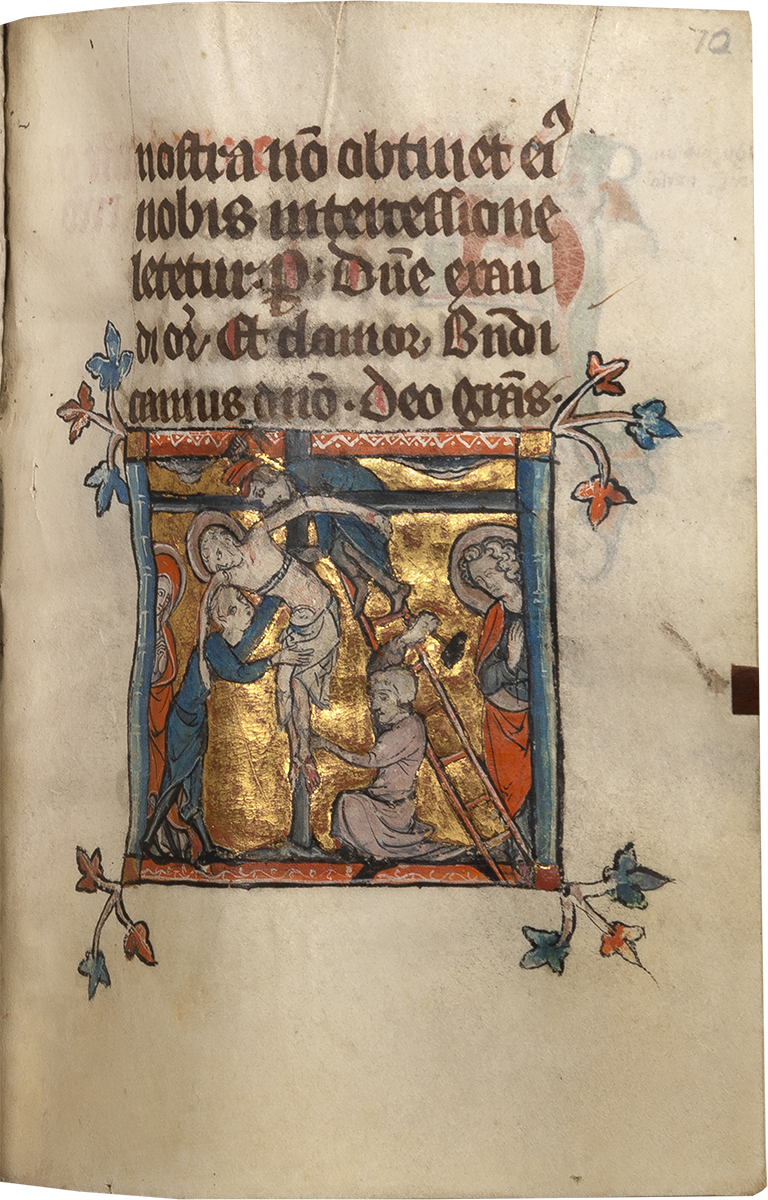 70
nostra nō obtinet ei⁹
nobis intercessione
letetur. P. Dn̄e exau
di or̄. Et clamor. Bn̄di
camus dn̄o. Deo gr̄as.